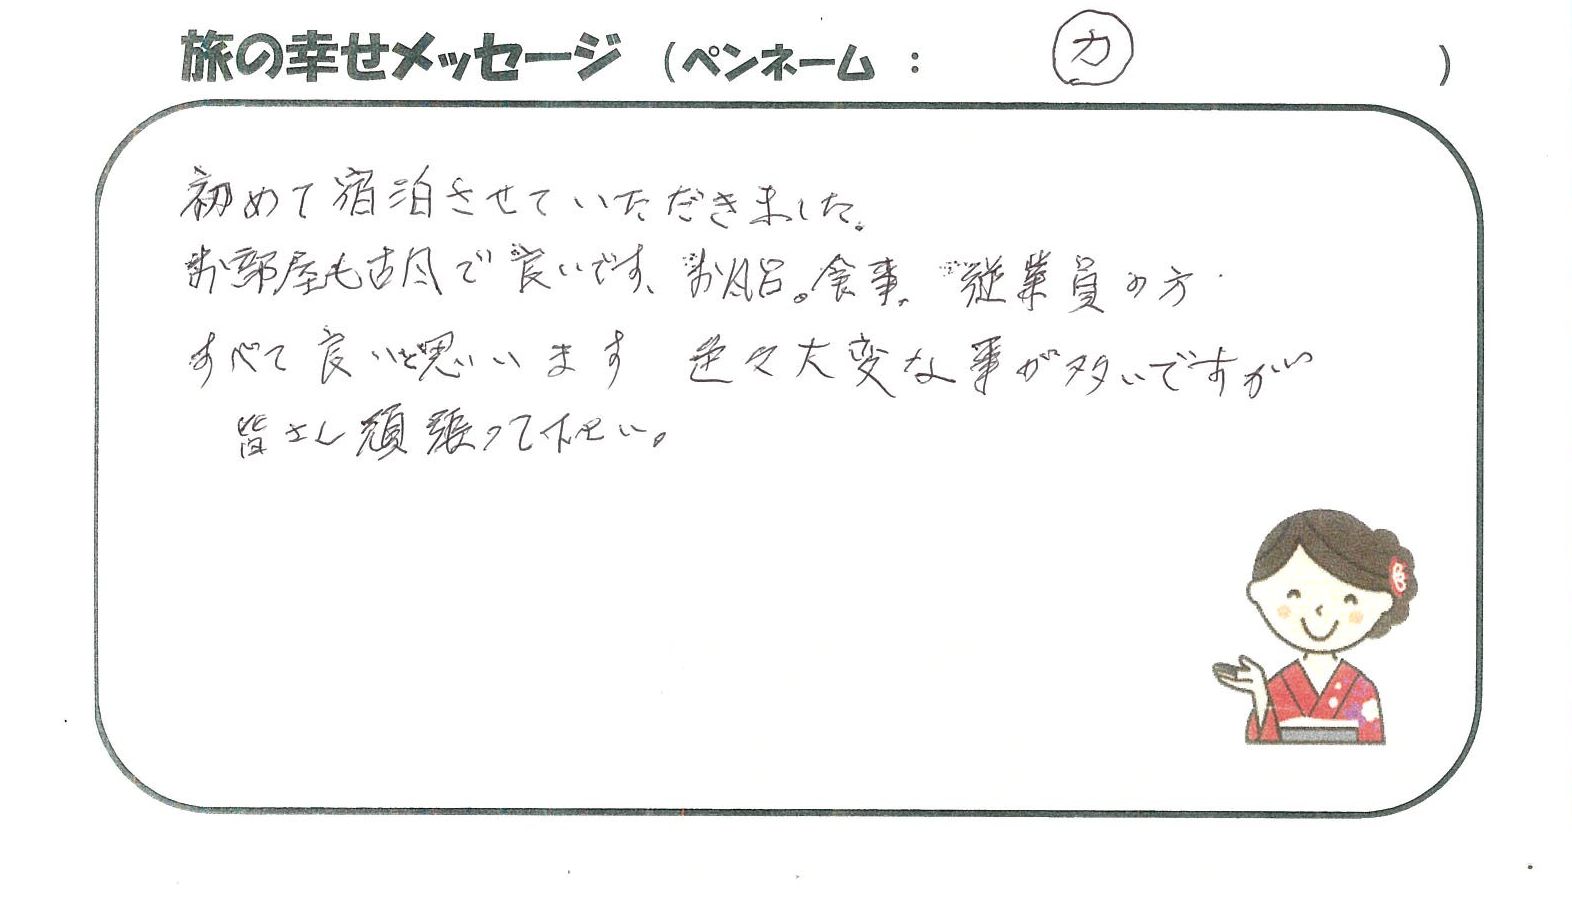 旅の幸せメッセージ (ペンネーム : カ )
初めて宿泊させていただきました。
お部屋も古風で良いです、お風呂。食事、従業員の方
すべて良いと思いいます 色々大変な事が多いですがい
皆さん頑張って下さい。